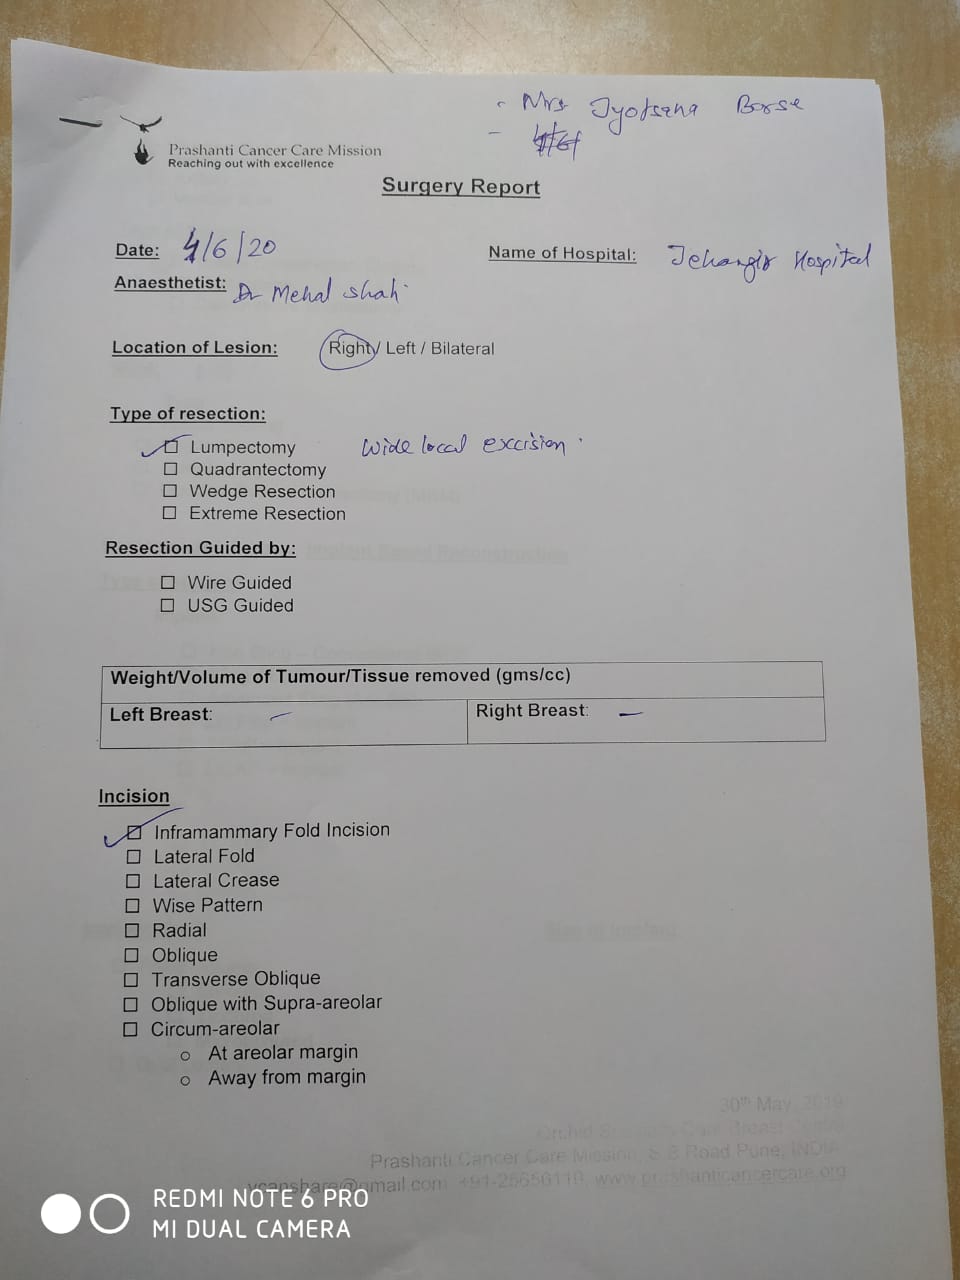 - Mrs Jyotsana Borse
Prashanti Cancer Care Mission
Reaching out with excellence
Surgery Report
Date: 4/6/20 Name of Hospital: Jehangir Hospital
Anaesthetist: Dr Mehal Shah
Location of Lesion: Right / Left / Bilateral
Type of resection:
☐ Lumpectomy Wide local excision
☐ Quadrantectomy
☐ Wedge Resection
☐ Extreme Resection
Resection Guided by:
☐ Wire Guided
☐ USG Guided
Weight/Volume of Tumour/Tissue removed (gms/cc)
Left Breast: – Right Breast: –
Incision
☐ Inframammary Fold Incision
☐ Lateral Fold
☐ Lateral Crease
☐ Wise Pattern
☐ Radial
☐ Oblique
☐ Transverse Oblique
☐ Oblique with Supra-areolar
☐ Circum-areolar
o At areolar margin
o Away from margin
30th May, 2019
Prashanti Cancer Care Mission, S B Road Pune, INDIA
www.prashanticancercare.org
REDMI NOTE 6 PRO
MI DUAL CAMERA